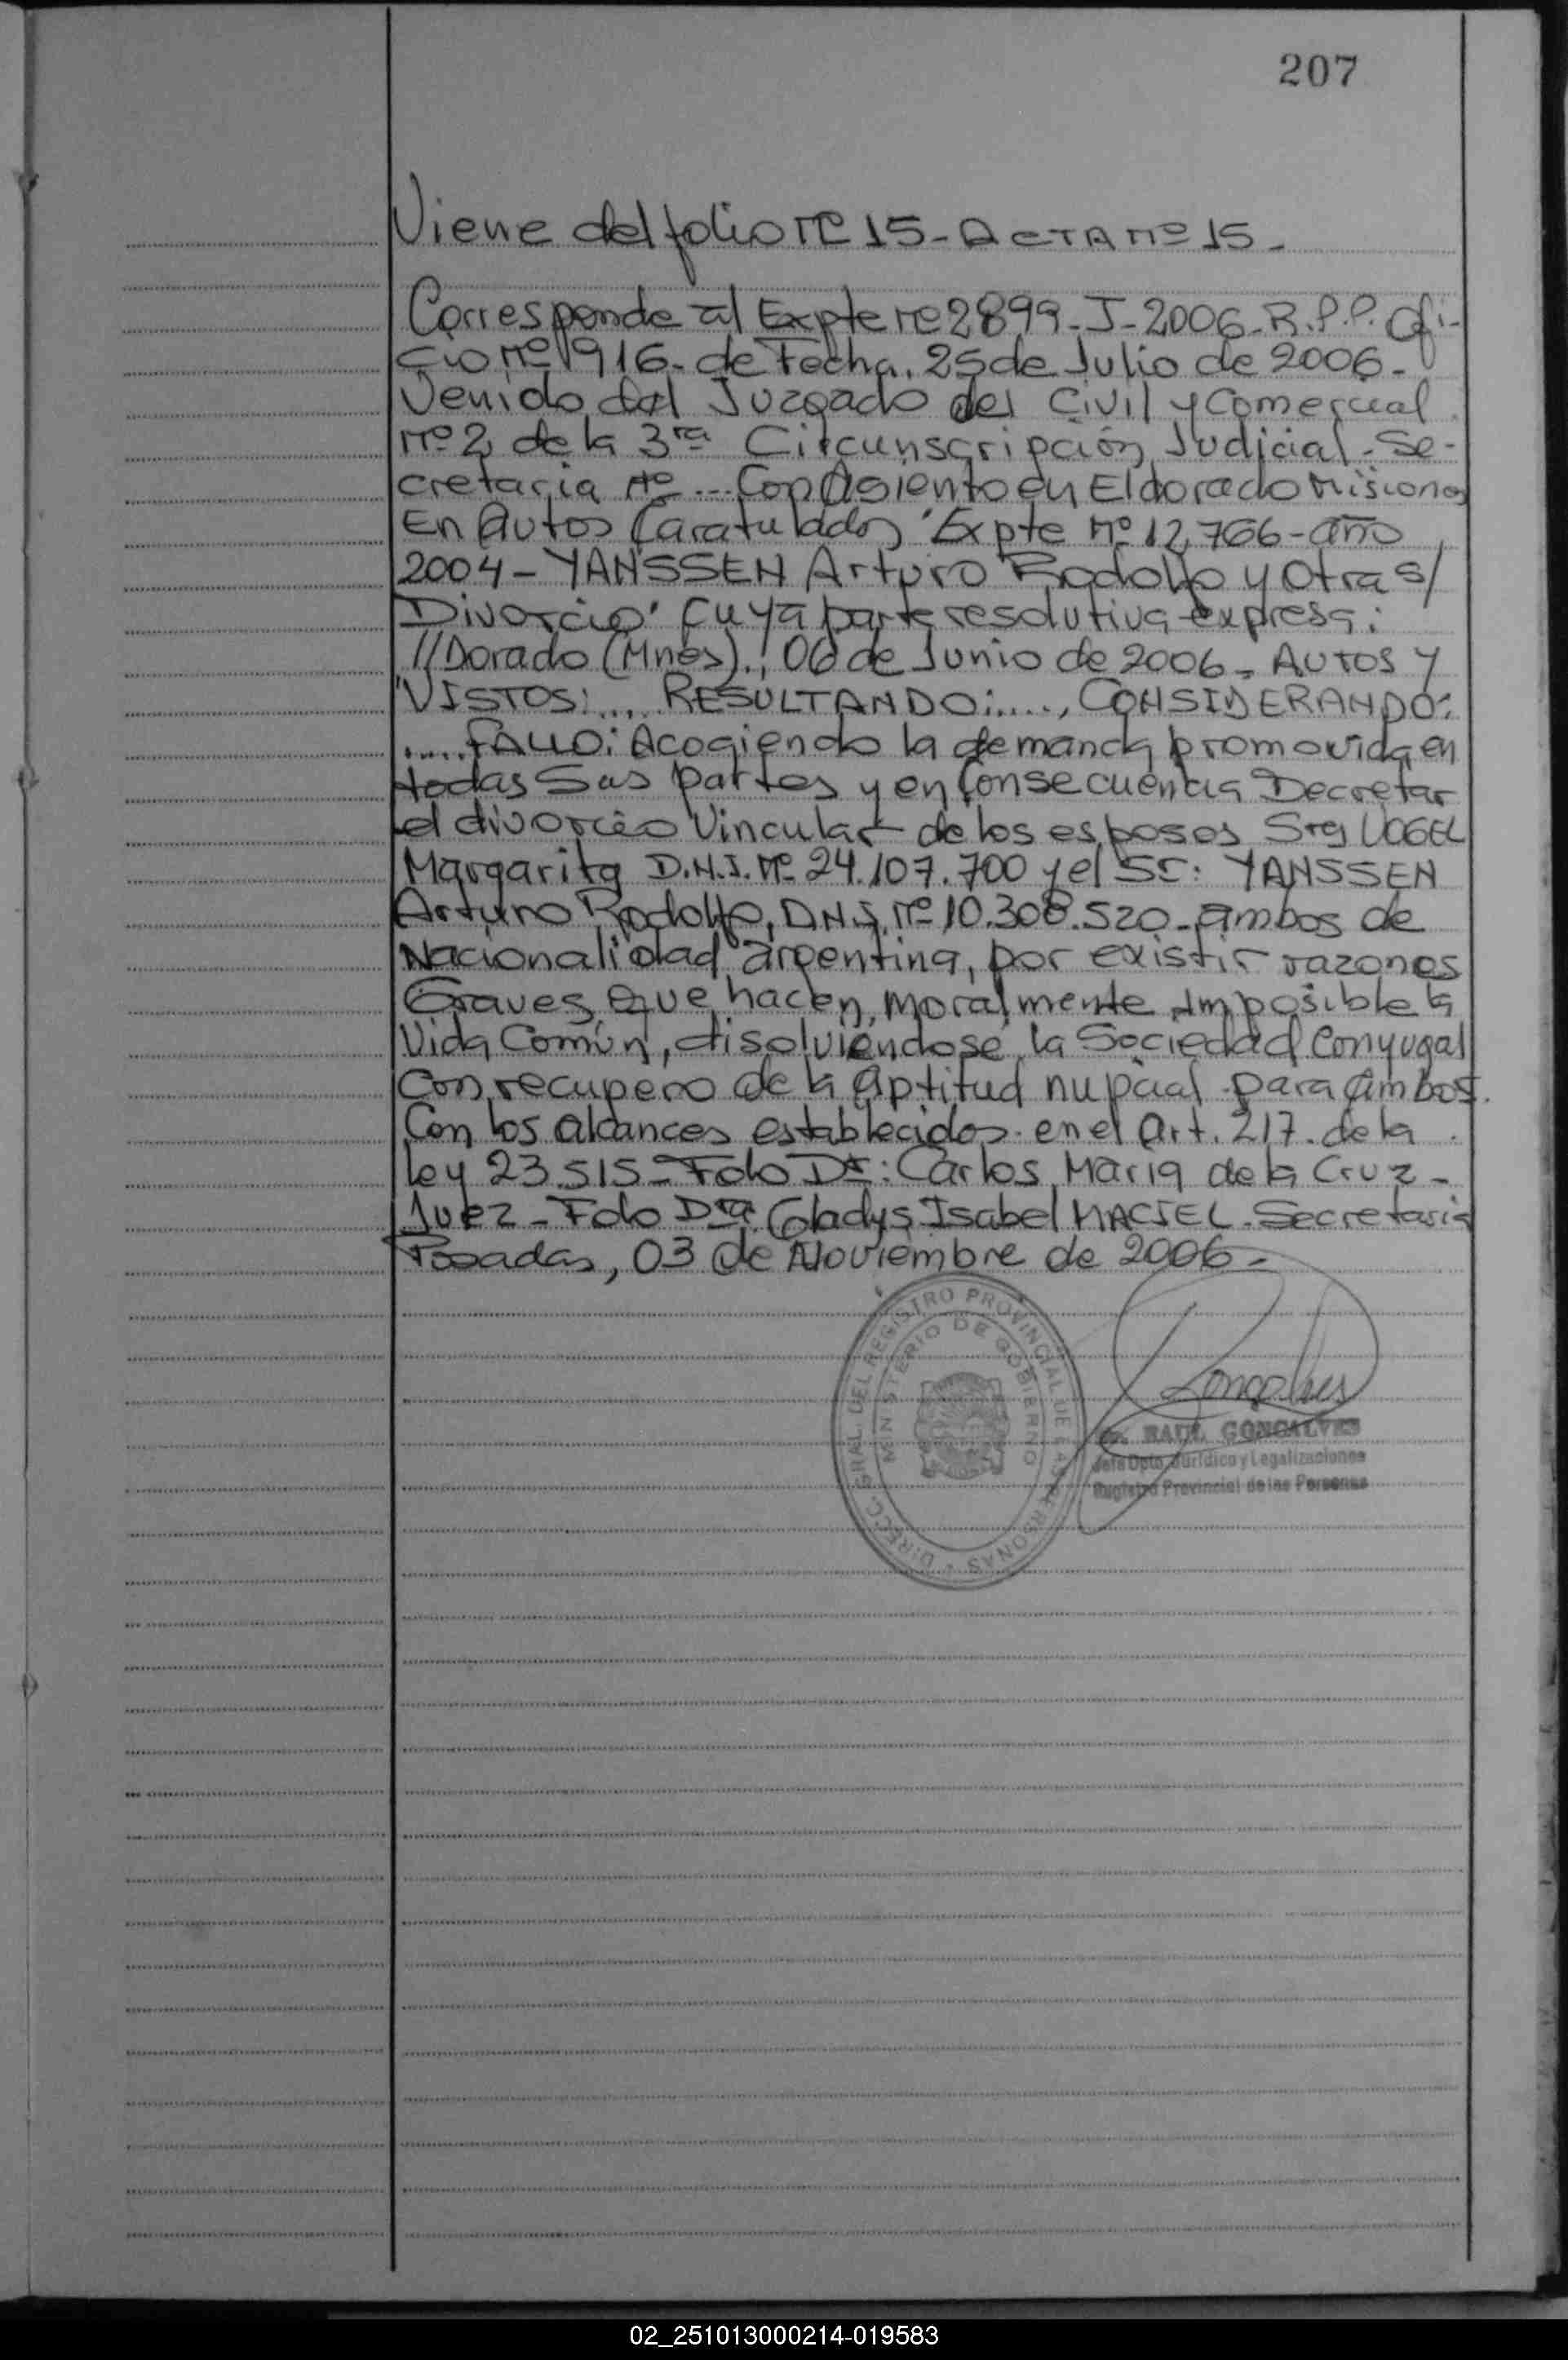 207
Viene del folio Nº 15 - ACTA Nº 15 -
Corresponde al Expte Nº 2899-J-2006-R.P.P. Ofi-
cio Nº 916- de Fecha, 25 de Julio de 2006-
Venido del Juzgado del Civil y Comercial
Nº 2, de la 3ra Circunscripción Judicial - Se-
cretaria Nº ... Con Asiento en Eldorado Misiones
En Autos Caratulados "Expte Nº 12,766-año
2004 - YANSSEN Arturo Rodolfo y Otra S/
Divorcio" Cuya parte resolutiva expresa:
//Dorado (Mnes)., 06 de Junio de 2006 - AUTOS Y
VISTOS:.... RESULTANDO:...., CONSIDERANDO:
..... FALLO: Acogiendo la demanda promovida en
todas Sus partes y en Consecuencia Decretar
el divorcio Vincular de los esposos Sra VOGEL
Margarita D.N.I. Nº 24.107.700 y el Sr: YANSSEN
Arturo Rodolfo, D.N.I. Nº 10.308.520 - ambos de
Nacionalidad argentina, por existir razones
Graves que hacen, moralmente Imposible la
Vida Común, disolviéndose la Sociedad Conyugal
Con recupero de la Aptitud nupcial para ambos.
Con los alcances establecidos en el Art. 217. de la
Ley 23.515 - Fdo Dr: Carlos María de la Cruz -
Juez - Fdo Dra Gladys Isabel MACIEL - Secretaria
Posadas, 03 de Noviembre de 2006 -
DIRECC. GRAL. DEL REGISTRO PROVINCIAL DE LAS PERSONAS
MINISTERIO DE GOBIERNO
Goncalves
Dr. RAUL GONCALVES
Jefe Dpto. Jurídico y Legalizaciones
Registro Provincial de las Personas
02_251013000214-019583